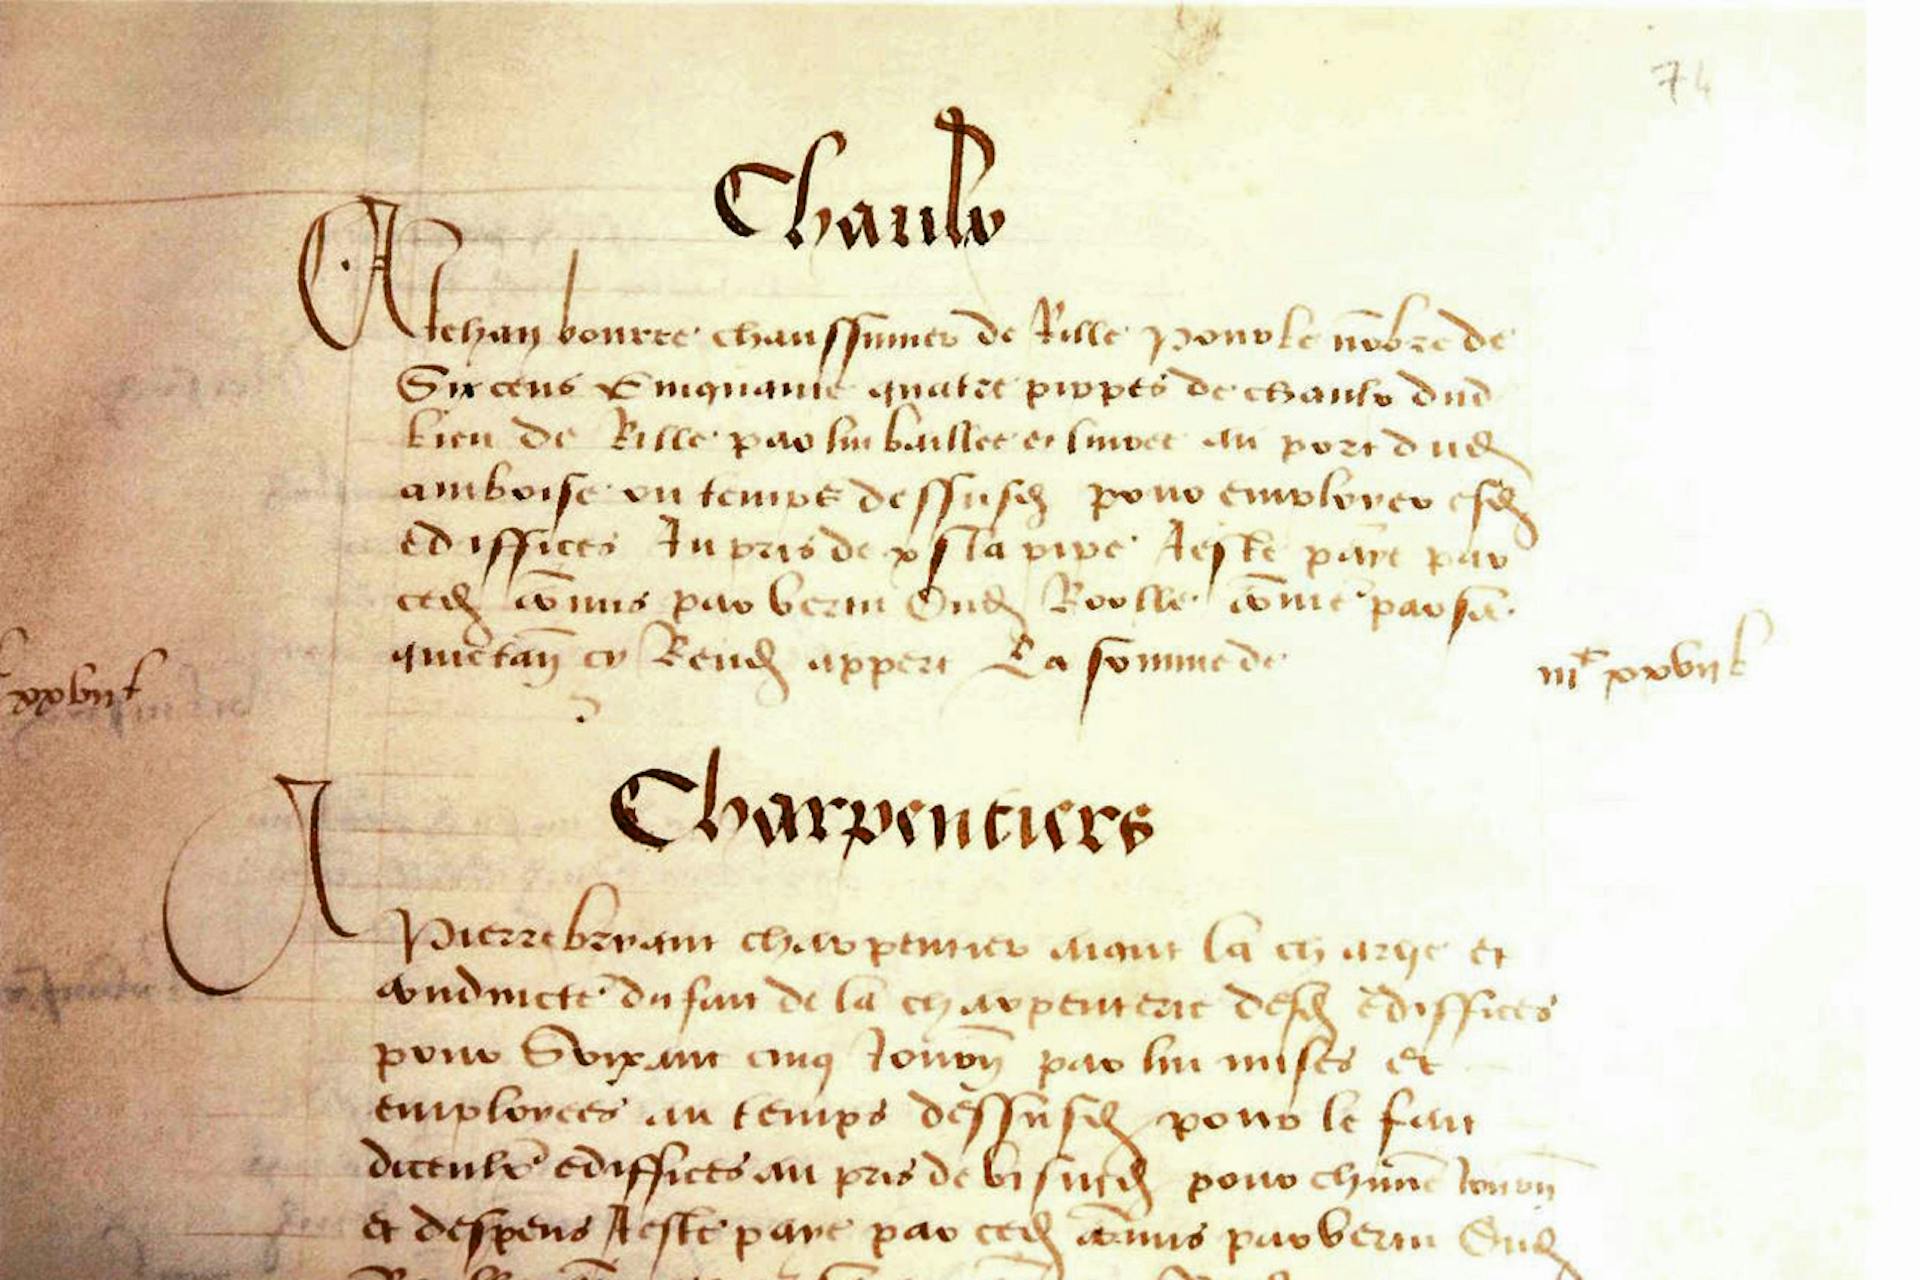 74
Chaulx
A Jehan bourre chaussumier de Rille pour le nōbre de
Six cens Cinquante quatre pippes de chaulx dud
lieu de Rille par lui baillee et livree au port dud
amboise ou temps dessusd pour employer esd
ediffices Au pris de x s la pipe A este paye par
ced cōmis par vertu Dud Roolle cōme par sa
quictan cy Rend appert La somme de
iiiᶜ xxvii l
xxvii l
Charpentiers
A
Pierre bryant charpentier aiant la charge et
conduicte du fait de la charpenterie desd ediffices
pour Soixant cinq Journ par lui mises et
employees au temps dessusd pour le fait
diceulx ediffices au pris de vi s pour chūne Journ
et despens A este paye par ced cōmis par vertu Dud